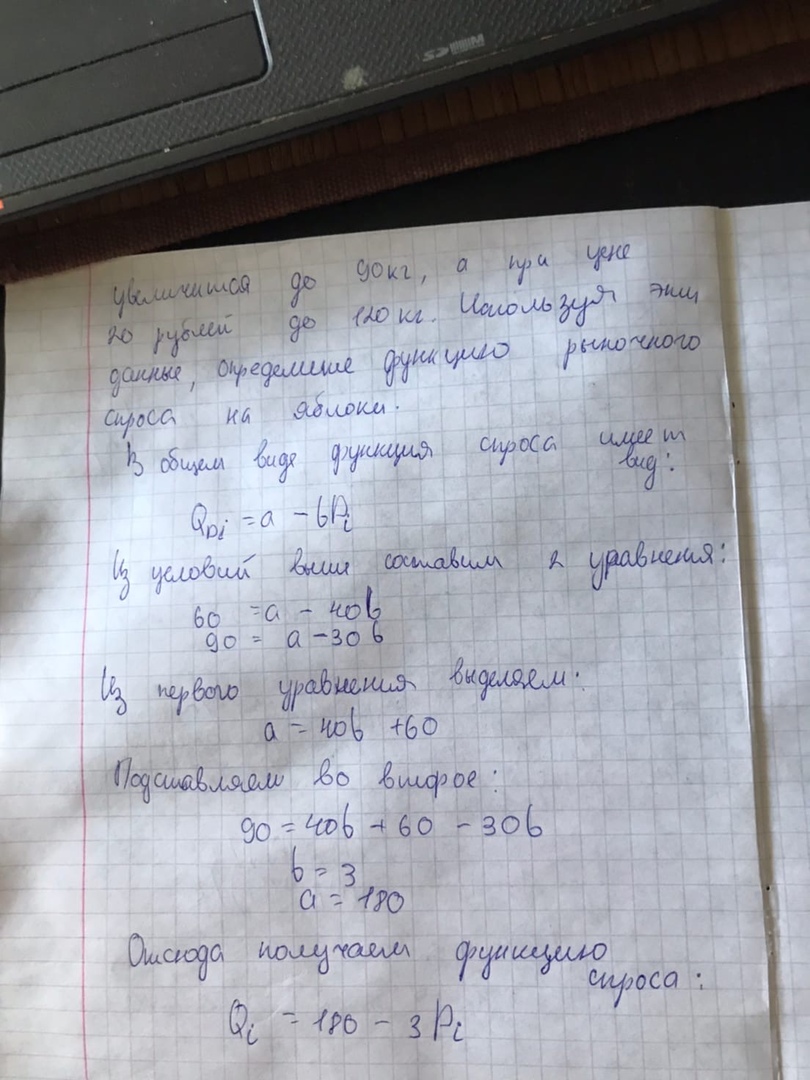 увеличится до 90кг, а при цене
20 рублей до 120кг. Используя эти
данные, определите функцию рыночного
спроса на яблоки.
В общем виде функция спроса имеет
вид:
Q_Di = a - bPi
Из условий выше составим 2 уравнения:
60 = a - 40b
90 = a - 30b
Из первого уравнения выделяем:
a = 40b + 60
Подставляем во второе:
90 = 40b + 60 - 30b
b = 3
a = 180
Отсюда получаем функцию
спроса:
Qi = 180 - 3Pi